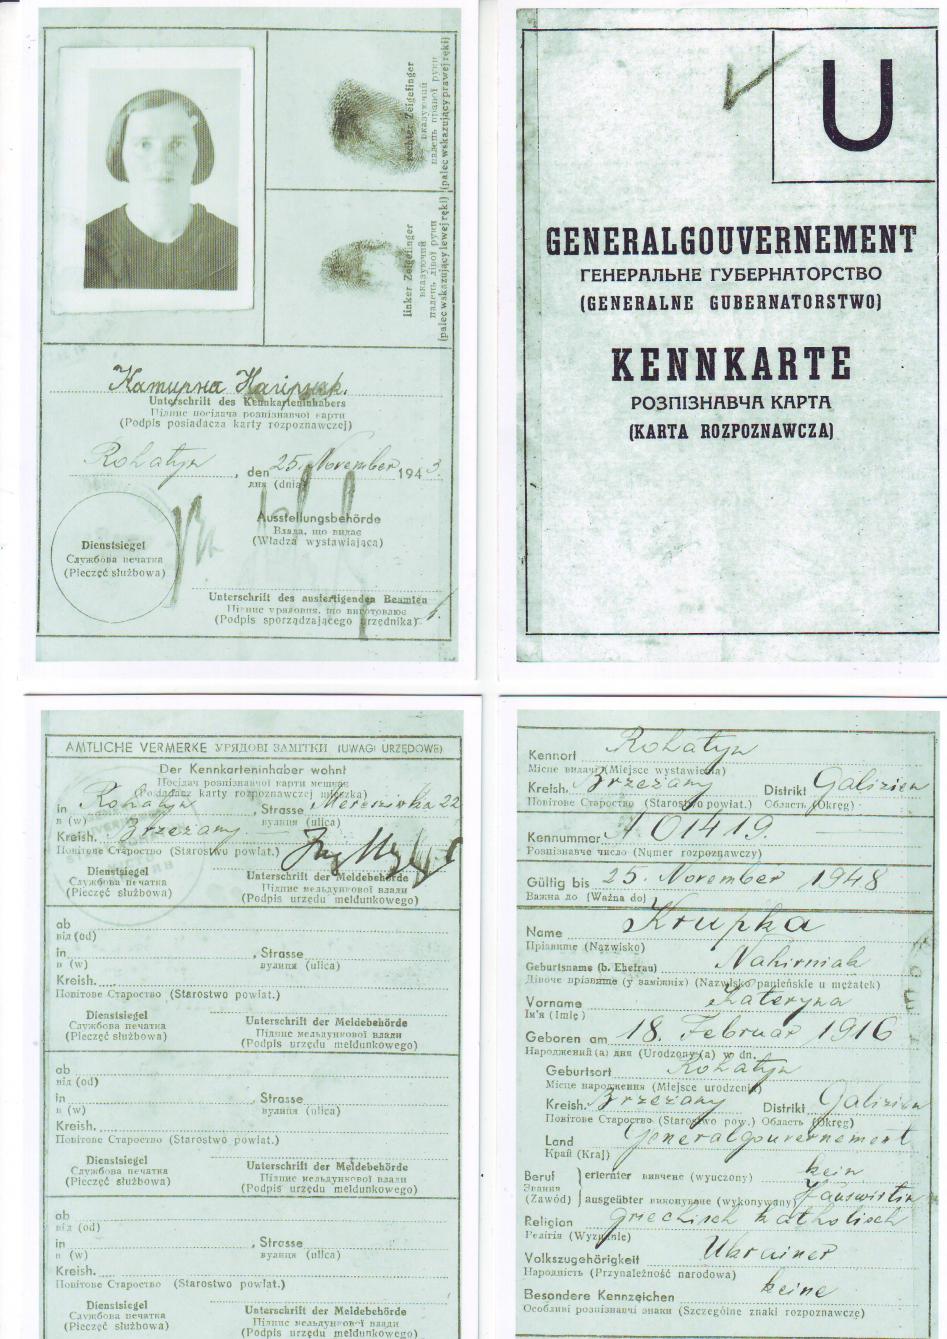 rechter Zeigefinger
вказуючий
палець правої руки
(palec wskazujący prawej ręki)
linker Zeigefinger
вказуючий
палець лівої руки
(palec wskazujący lewej ręki)
Катирна
Unterschrift des Kennkarteninhabers
Підпис посідача розпізнавчої карти
(Podpis posiadacza karty rozpoznawczej)
Rohatyn, den 25. November 1943.
дня (dnia)
Ausstellungsbehörde
Влада, що видає
(Władza wystawiająca)
Dienstsiegel
Службова печатка
(Pieczęć służbowa)
Unterschrift des ausfertigenden Beamten
Підпис урядовця, що виготовлює
(Podpis sporządzającego urzędnika)
U
GENERALGOUVERNEMENT
ГЕНЕРАЛЬНЕ ГУБЕРНАТОРСТВО
(GENERALNE GUBERNATORSTWO)
KENNKARTE
РОЗПІЗНАВЧА КАРТА
(KARTA ROZPOZNAWCZA)
AMTLICHE VERMERKE УРЯДОВІ ЗАМІТКИ (UWAGI URZĘDOWE)
Der Kennkarteninhaber wohnt
Посідач розпізнавчої карти мешкає
(Posiadacz karty rozpoznawczej mieszka)
in Rohatyn, Strasse 22
в (w) вулиця (ulica)
Kreish. Brzezany
Повітове Староство (Starostwo powiat.)
Dienstsiegel
Службова печатка
(Pieczęć służbowa)
Unterschrift der Meldebehörde
Підпис мельдункової влади
(Podpis urzędu meldunkowego)
ab
від (od)
in , Strasse
в (w) вулиця (ulica)
Kreish.
Повітове Староство (Starostwo powiat.)
Dienstsiegel
Службова печатка
(Pieczęć służbowa)
Unterschrift der Meldebehörde
Підпис мельдункової влади
(Podpis urzędu meldunkowego)
ab
від (od)
in , Strasse
в (w) вулиця (ulica)
Kreish.
Повітове Староство (Starostwo powiat.)
Dienstsiegel
Службова печатка
(Pieczęć służbowa)
Unterschrift der Meldebehörde
Підпис мельдункової влади
(Podpis urzędu meldunkowego)
ab
від (od)
in , Strasse
в (w) вулиця (ulica)
Kreish.
Повітове Староство (Starostwo powiat.)
Dienstsiegel
Службова печатка
(Pieczęć służbowa)
Unterschrift der Meldebehörde
Підпис мельдункової влади
(Podpis urzędu meldunkowego)
Kennort Rohatyn
Місце видачі (Miejsce wystawienia)
Kreish. Brzezany Distrikt Galizien
Повітове Староство (Starostwo powiat.) Область (Okręg)
Kennummer A 01419
Розпізнавче число (Numer rozpoznawczy)
Gültig bis 25. November 1948
Важна до (Ważna do)
Name Krupka
Прізвище (Nazwisko)
Geburtsname (b. Ehefrau) Nahirniak
Дівоче прізвище (у заміжніх) (Nazwisko panieńskie u mężatek)
Vorname Kateryna
Ім'я (Imię)
Geboren am 18. Februar 1916
Народжений(а) дня (Urodzony(a) w dn.
Geburtsort Rohatyn
Місце народження (Miejsce urodzenia)
Kreish. Brzezany Distrikt Galizien
Повітове Староство (Starostwo pow.) Область (Okręg)
Land Generalgouvernement
Край (Kraj)
Beruf erlernter вивчене (wyuczony) kein
Звання
(Zawód) ausgeübter виконуване (wykonywany) Hauswirtin
Religion griechisch katholisch
Релігія (Wyznanie)
Volkszugehörigkeit Ukrainer
Народність (Przynależność narodowa)
Besondere Kennzeichen keine
Особливі розпізнавчі знаки (Szczególne znaki rozpoznawcze)